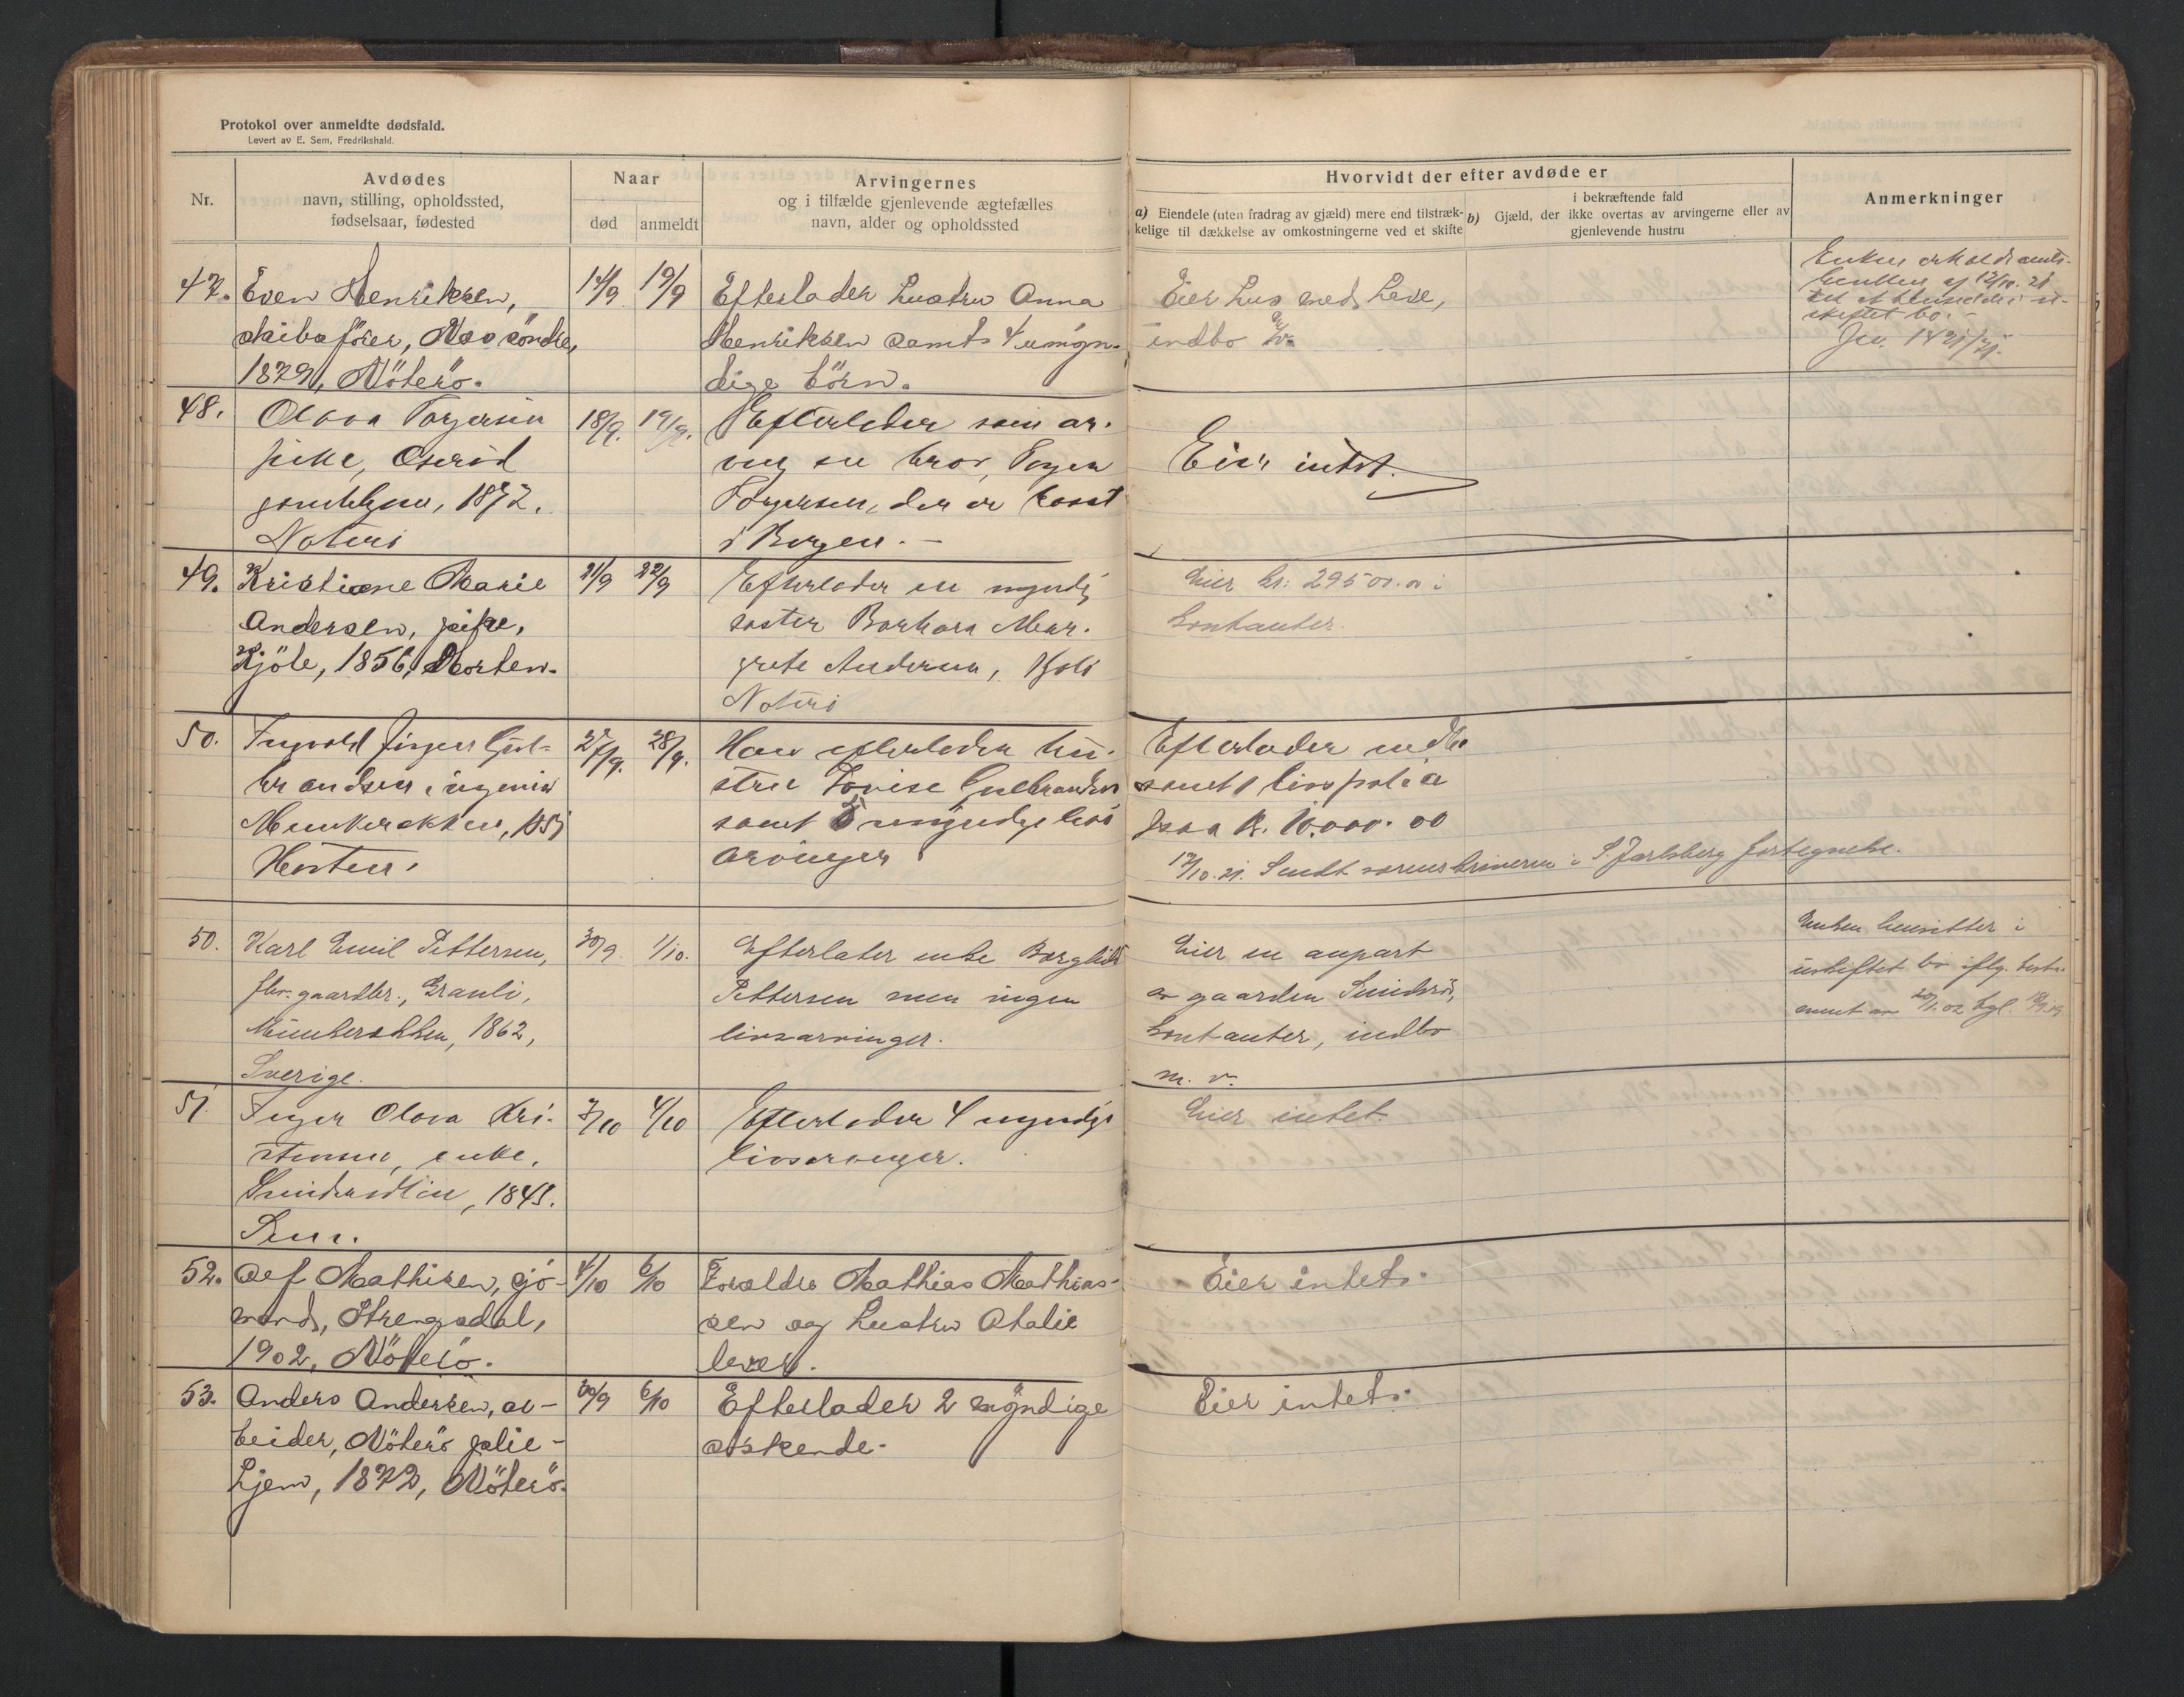 Protokol over anmeldte dødsfald.
Levert av E. Sem, Fredrikshald.
Nr.
Avdødes
navn, stilling, opholdssted,
fødselsaar, fødested
Naar
død
anmeldt
Arvingernes
og i tilfælde gjenlevende ægtefælles
navn, alder og opholdssted
Hvorvidt der efter avdøde er
a) Eiendele (uten fradrag av gjæld) mere end tilstræk-
kelige til dækkelse av omkostningerne ved et skifte
i bekræftende fald
b) Gjæld, der ikke overtas av arvingerne eller av
gjenlevende hustru
Anmerkninger
47. Even Henriksen,
skibsfører, Næs söndre,
1879, Nöterö.
14/9 19/9
Efterlader hustru Anna
Henriksen samt 4 umyn-
dige börn.
Eier hus med have,
indbo
Enken erholdt
12/10. 21
bo.
48. Olava Torgersen
pike, Oserød
1872.
Nøterø
18/9. 19/9.
Efterlader som ar-
ving en bror, Torger
Torgersen, der er bosat
i Bergen. -
Eier intet.
49. Kristiane Marie
Andersen, pike,
Kjöle, 1856, Horten.
21/9 22/9
Efterlader en myndig
søster Barbara Mar-
grete Andersen,
Nøterø
Eier kr: 29500.00 i
kontanter.
50. Ingvald Jørgen Gul-
brandsen, ingeniør
Munkerekken,
Horten.
27/9. 28/9.
Han efterlader hu-
stru Lovise Gulbrandsen
samt 5 umyndige livs
arvinger
Efterlader indbo
samt 1 livspolice
paa kr. 10.000.00
17/10. 21. Sendt sorenskriveren i S. Jarlsberg fortegnelse.
50. Karl Emil Pettersen,
fhv. gaardbr., Granli,
Munkerekken, 1862,
Sverige.
30/9. 1/10.
Efterlater enke Borghild
Pettersen men ingen
livsarvinger.
Eier en anpart
av gaarden
kontanter, indbo
m. v.
Enken hensitter i
uskiftet bo iflg. testa-
ment av
51. Inger Olava Kri-
stensen, enke,
Sem.
3/10 4/10
Efterlader 4 myndige
livsarvinger.
Eier intet.
52. Alf Mathisen, sjö-
mand, Strengsdal,
1902, Nöterö.
4/10 6/10
Forældre Mathias Mathias-
sen og hustru Atalie
lever.
Eier intet.
53. Anders Andersen, ar-
beider, Nöterö pleie-
hjem, 1872, Nöterö.
30/9 6/10
Efterlader 2 myndige
söskende.
Eier intet.